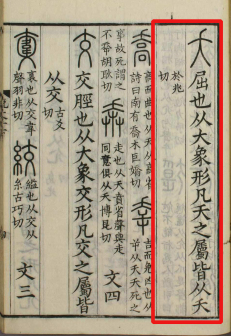 夭屈也从大象形凡夭之屬皆从夭
於兆
切
喬高而曲也从夭从高省
詩曰南有喬木巨嬌切
𡴘吉而免凶也从
屰从夭夭死之
事故死謂之
不𡴘胡耿切
奔走也从夭賁省聲與走
同意俱从夭博昆切
文四
交交脛也从大象交形凡交之屬皆
从交
古爻
切
𡚤衺也从交韋
聲羽非切
絞縊也从交从
糸古巧切
文三